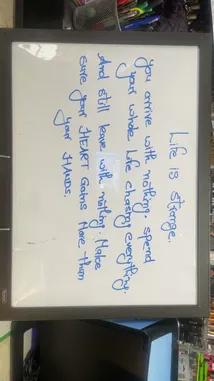 Life is strange..
you arrive with nothing. spend
your whole Life chasing everything.
And still leave with nothing. Make
sure your HEART Gains More than
your HANDS.